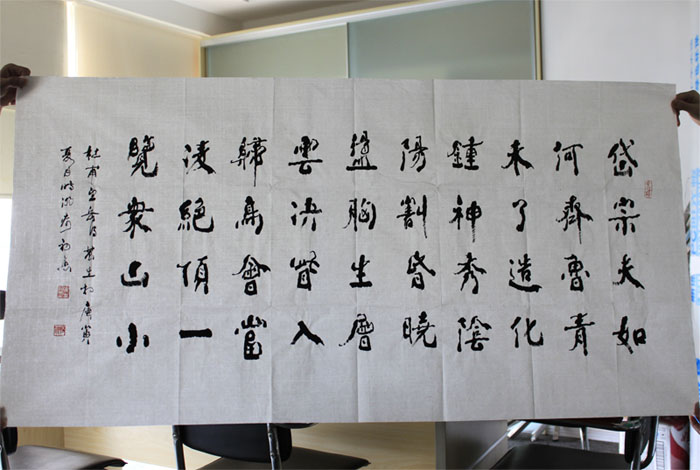 岱宗夫如
何齊魯青
未了造化
鍾神秀陰
陽割昏曉
盪胸生層
雲決眥入
歸鳥會當
凌絕頂一
覽衆山小
杜甫望岳
夏日